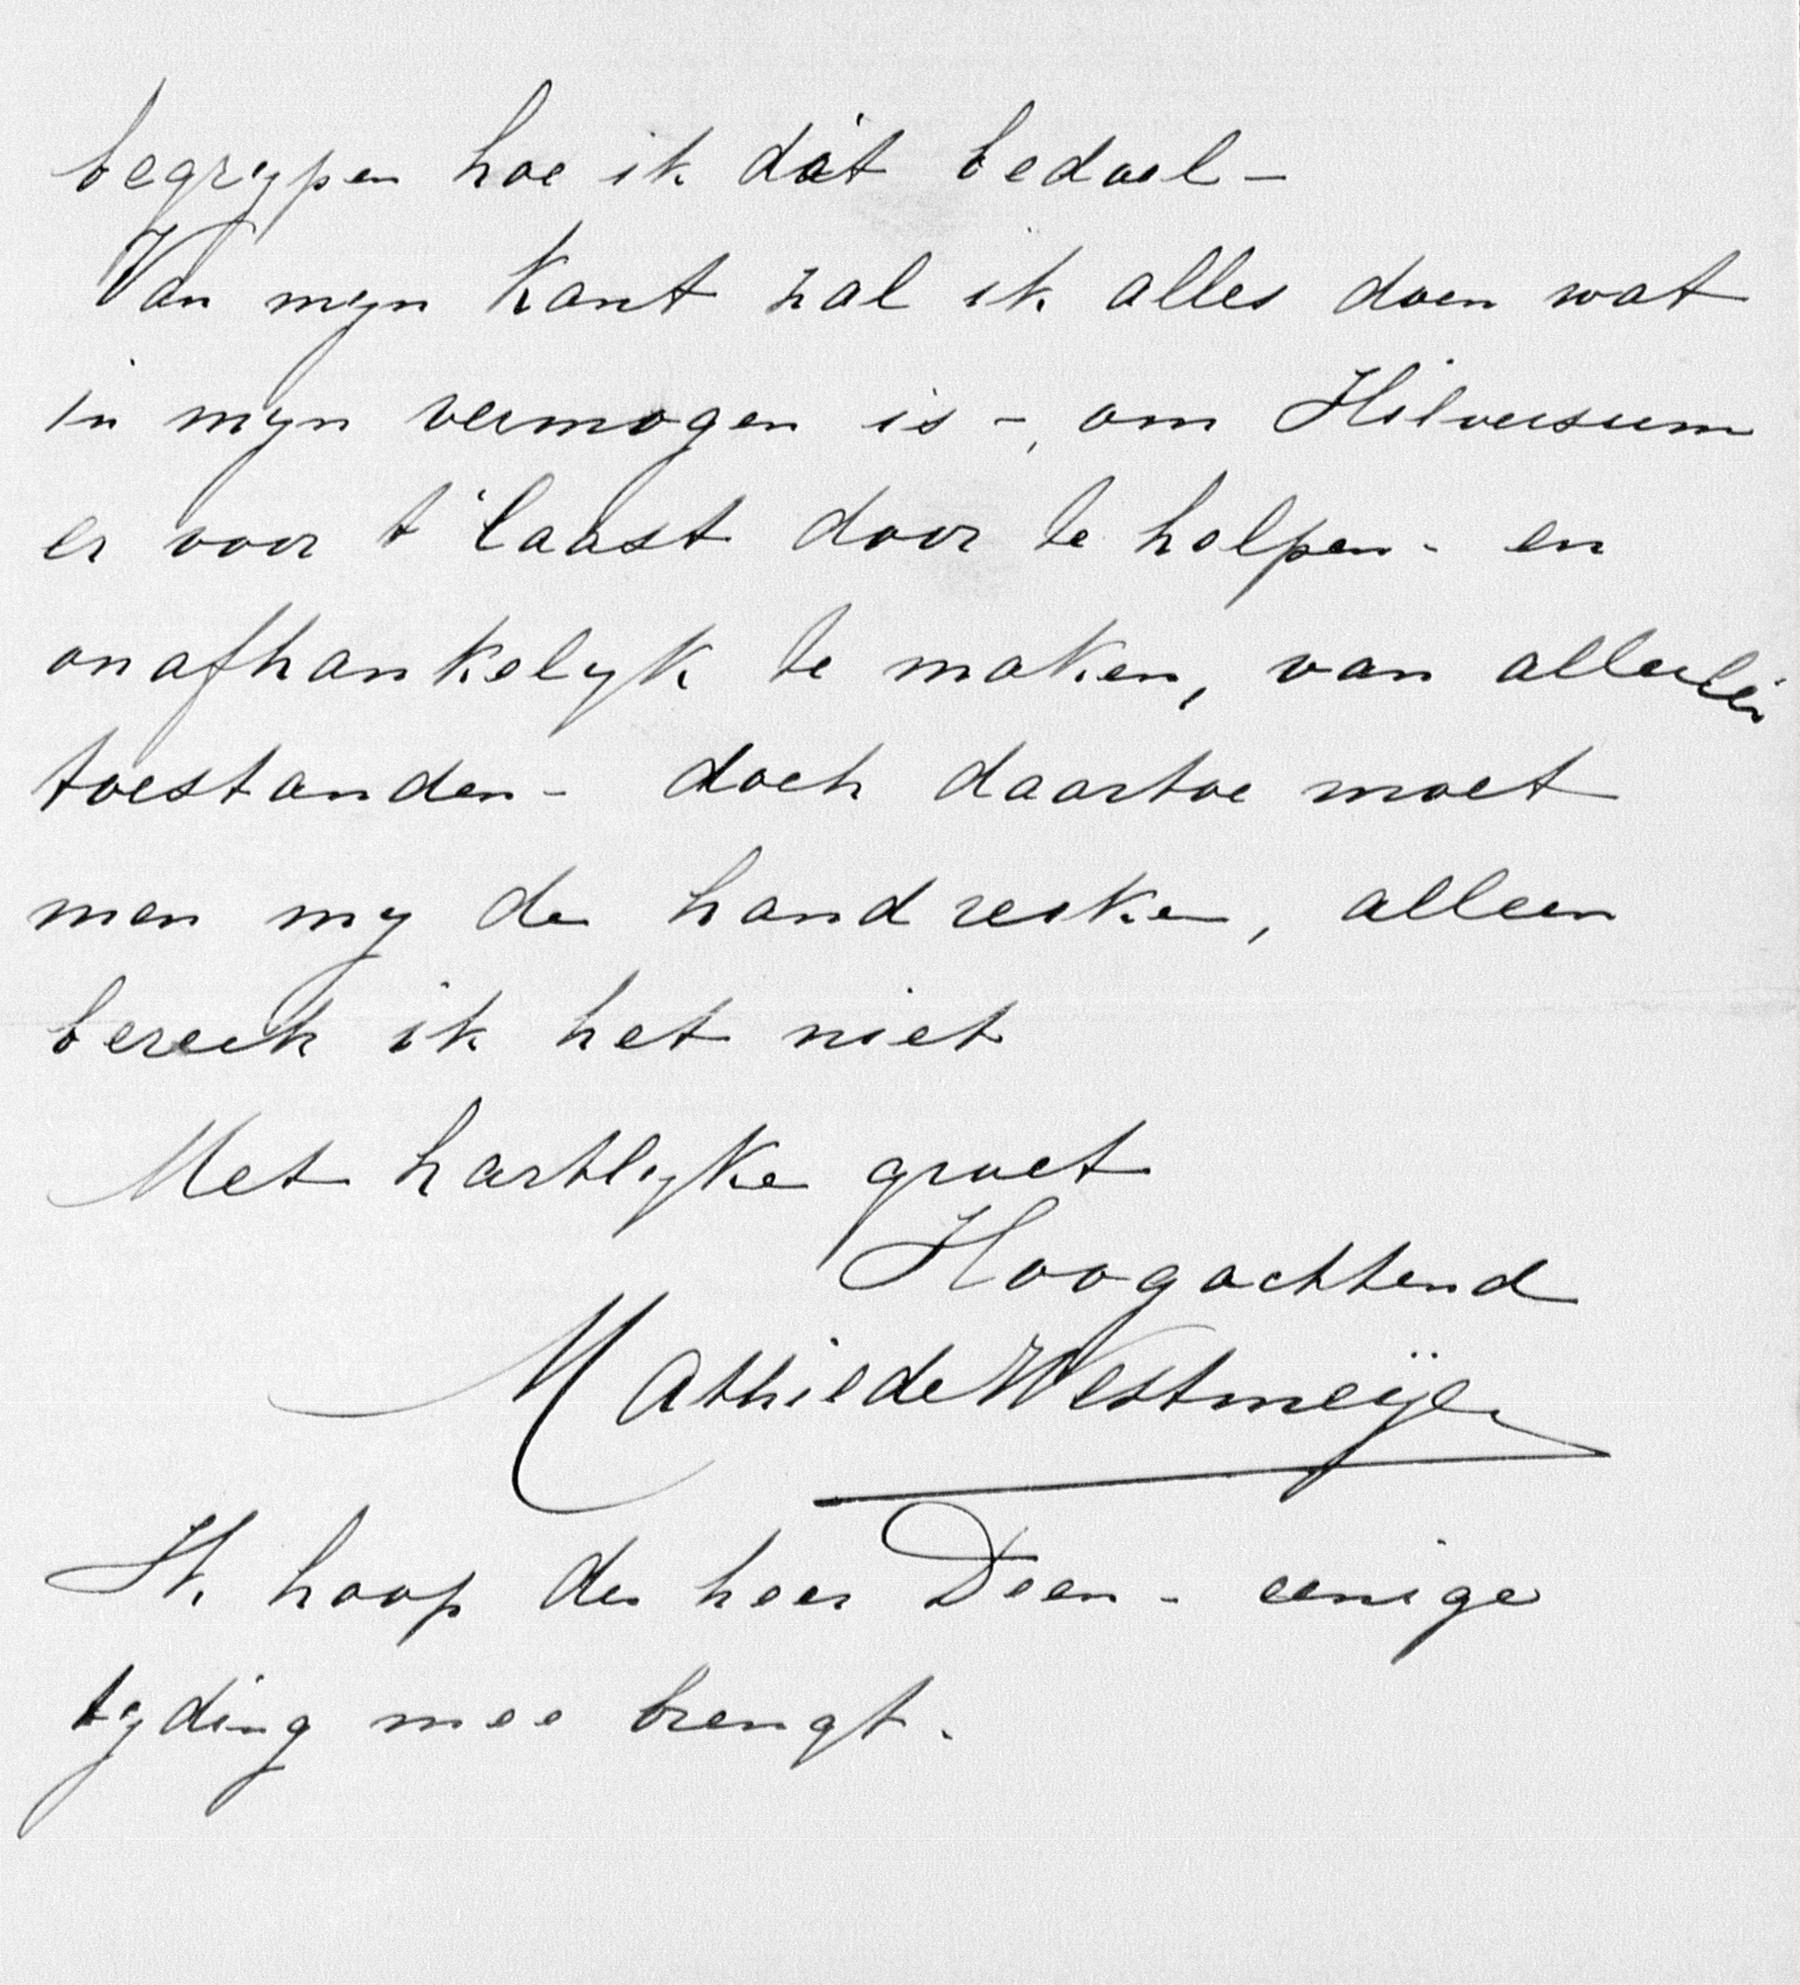 begrijpen hoe ik dát bedoel –
Van mijn kant zal ik alles doen wat
in mijn vermogen is –, om Hilversum
er voor t' laast door te helpen – en
onafhankelijk te maken, van allerlei
toestanden – doch daartoe moet
men mij de hand reiken, alleen
bereik ik het niet
Met hartlijke groet
Hoogachtend
Mathilde Westmeijer
Ik hoop de heer Deen – eenige
tijding mee brengt.